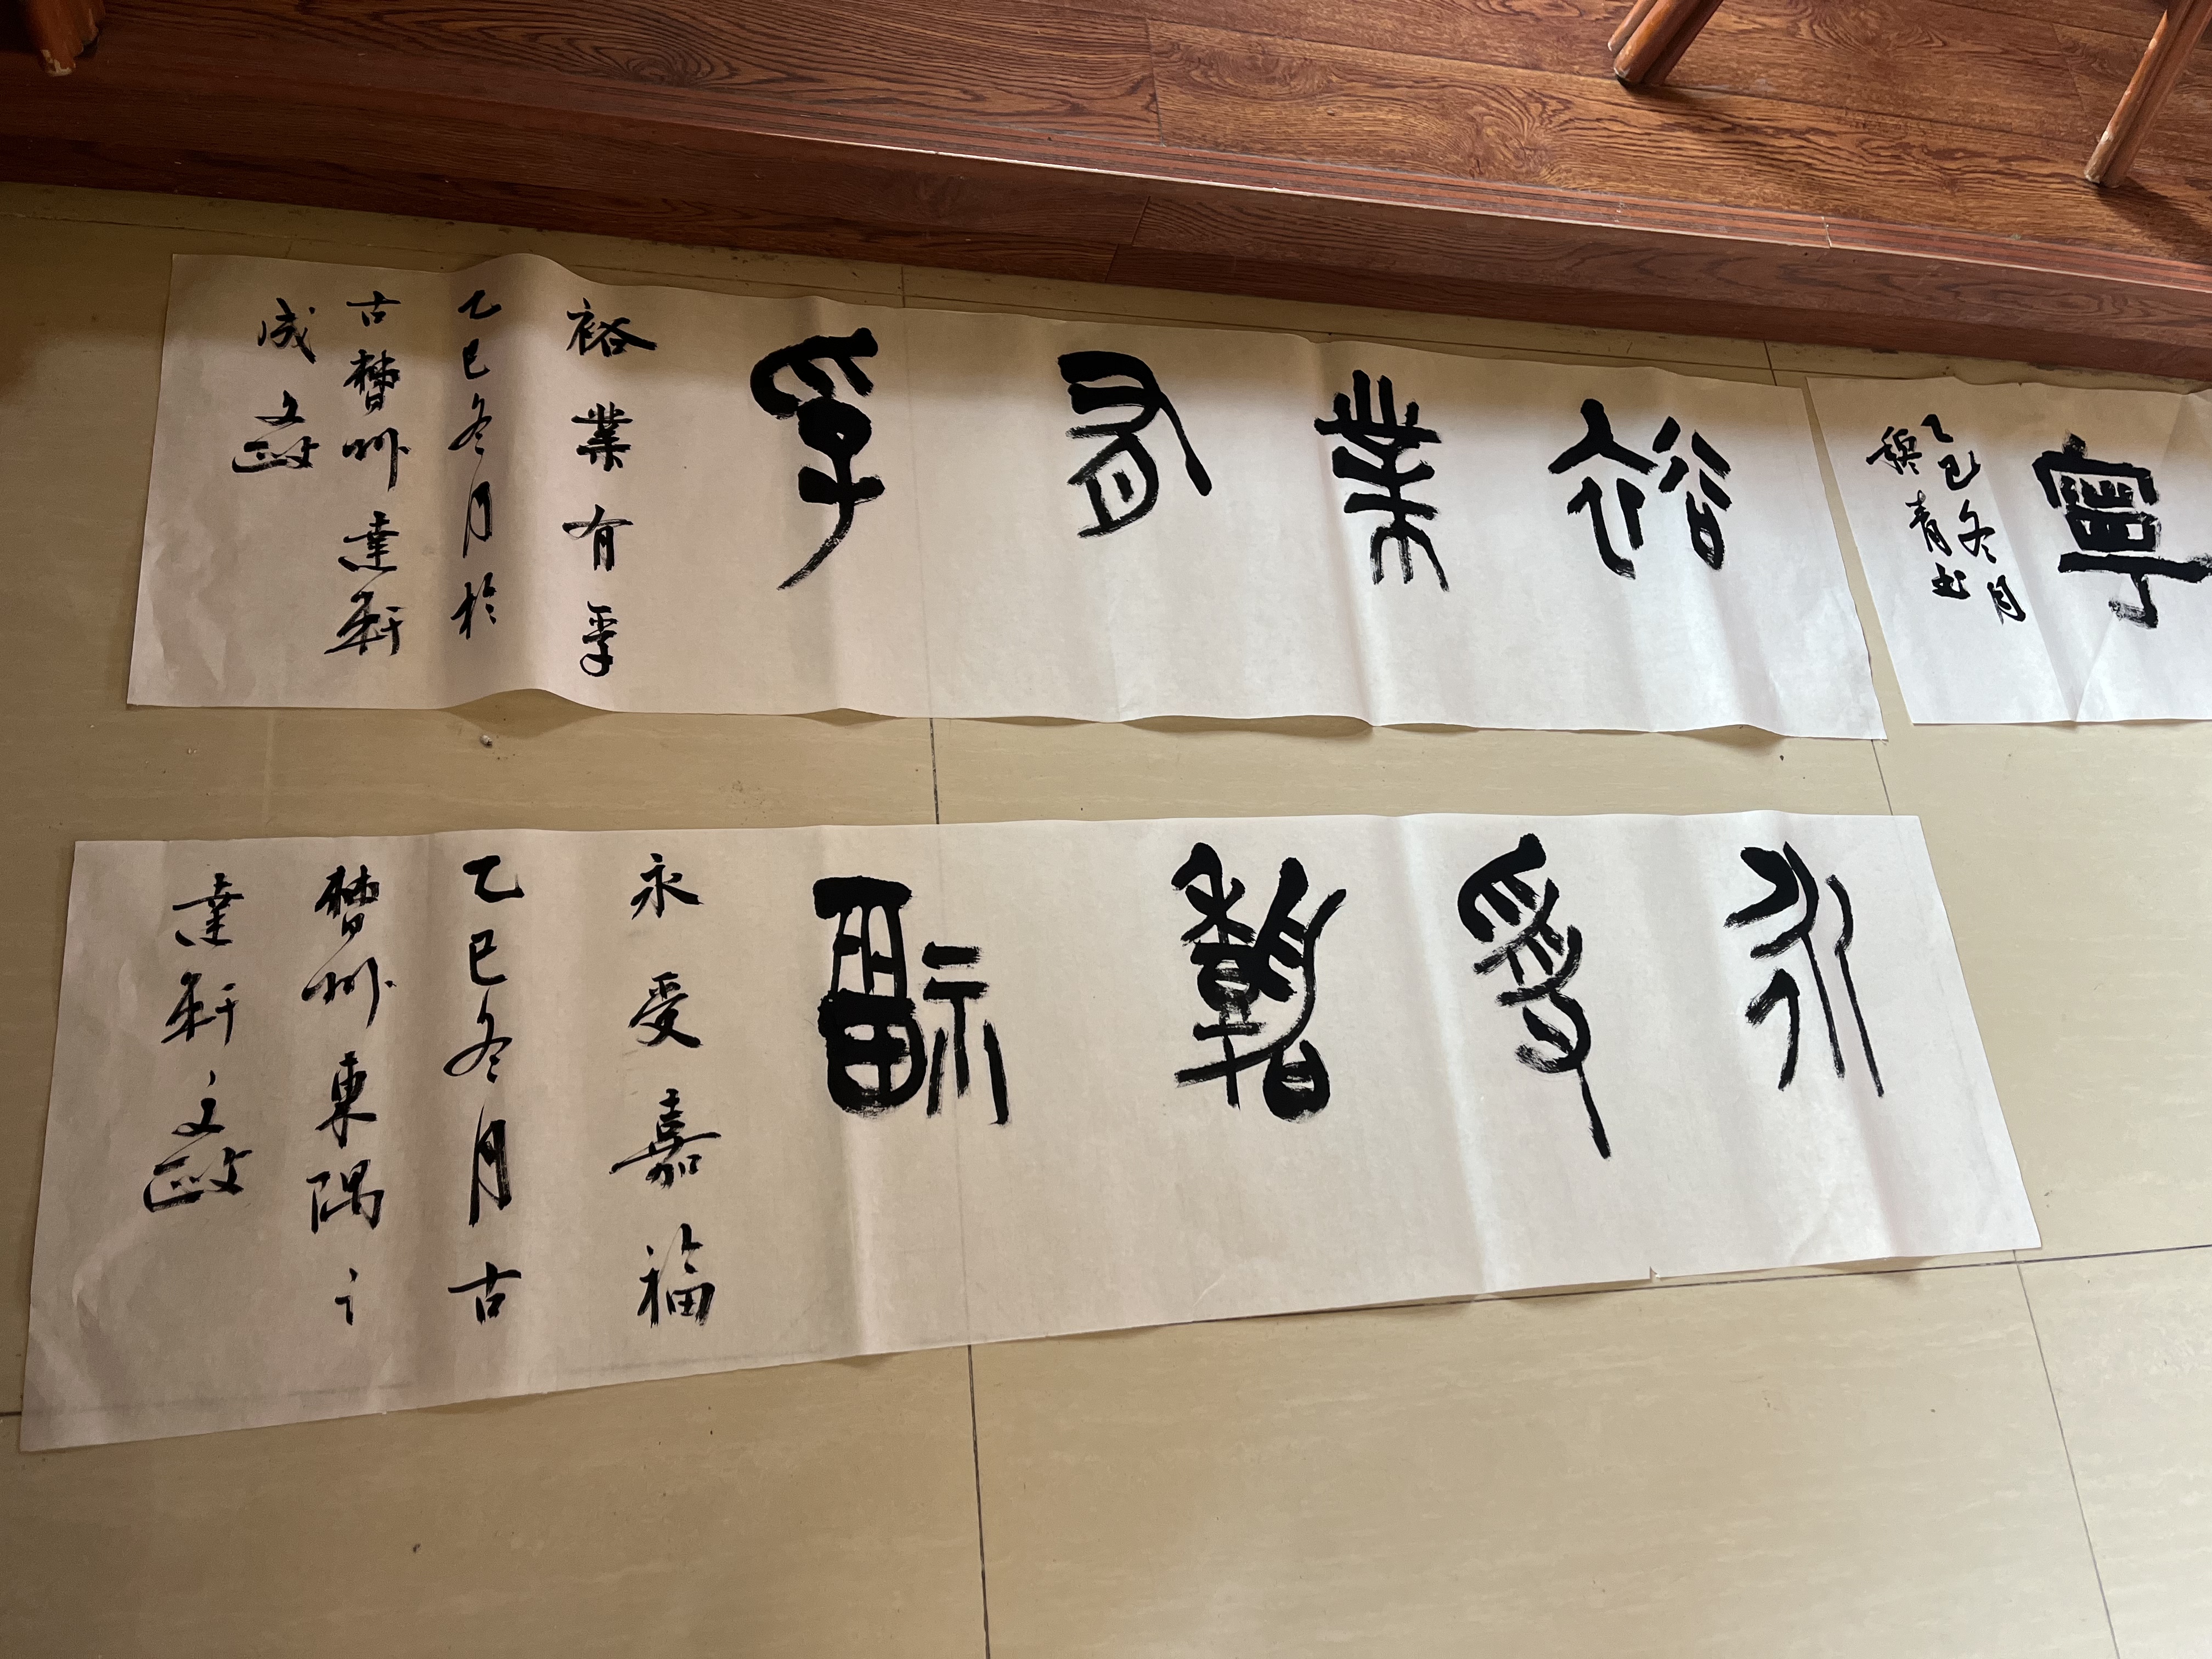 裕業有孚
裕業有孚
乙巳冬月於
古瞢州達軒
成文
永受嘉福
永受嘉福
乙巳冬月古
瞢州東隅之
達軒文
寧
乙巳冬月
青书